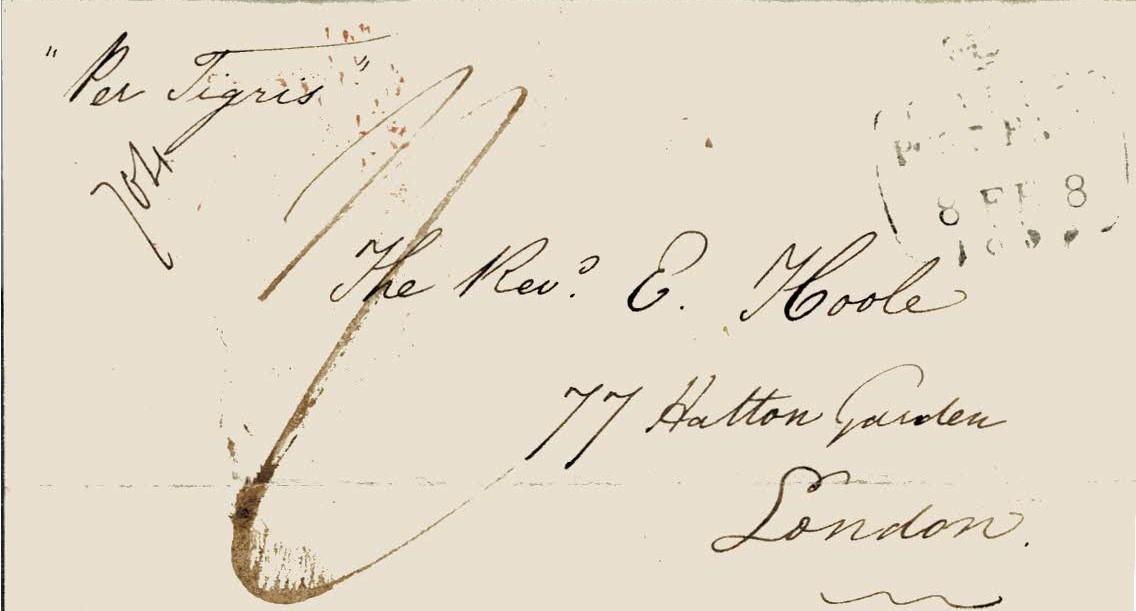 "Per Tigris"
8 FE 8
The Revd. E. Hoole
77 Hatton Garden
London.